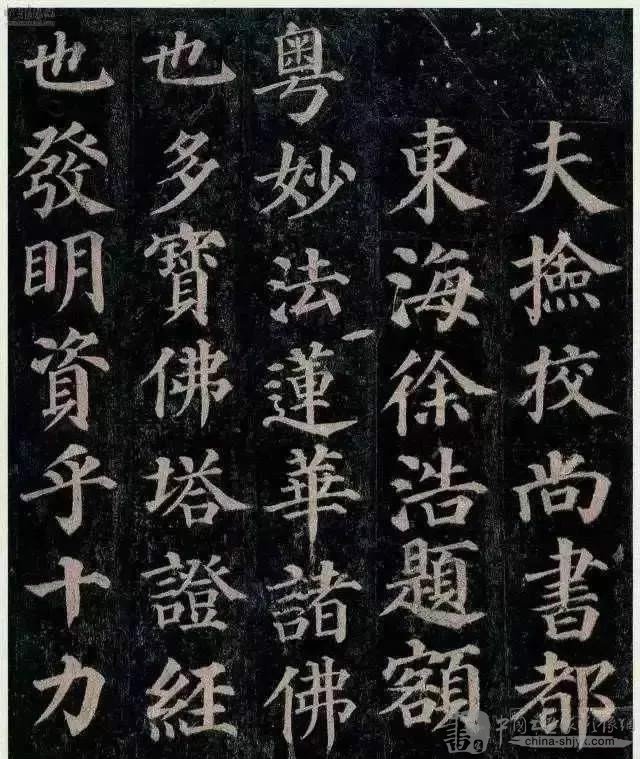 夫撿挍尚書都
東海徐浩題額
粵妙法蓮華諸佛
也多寶佛塔證經
也發明資乎十力
china-shjyx.com